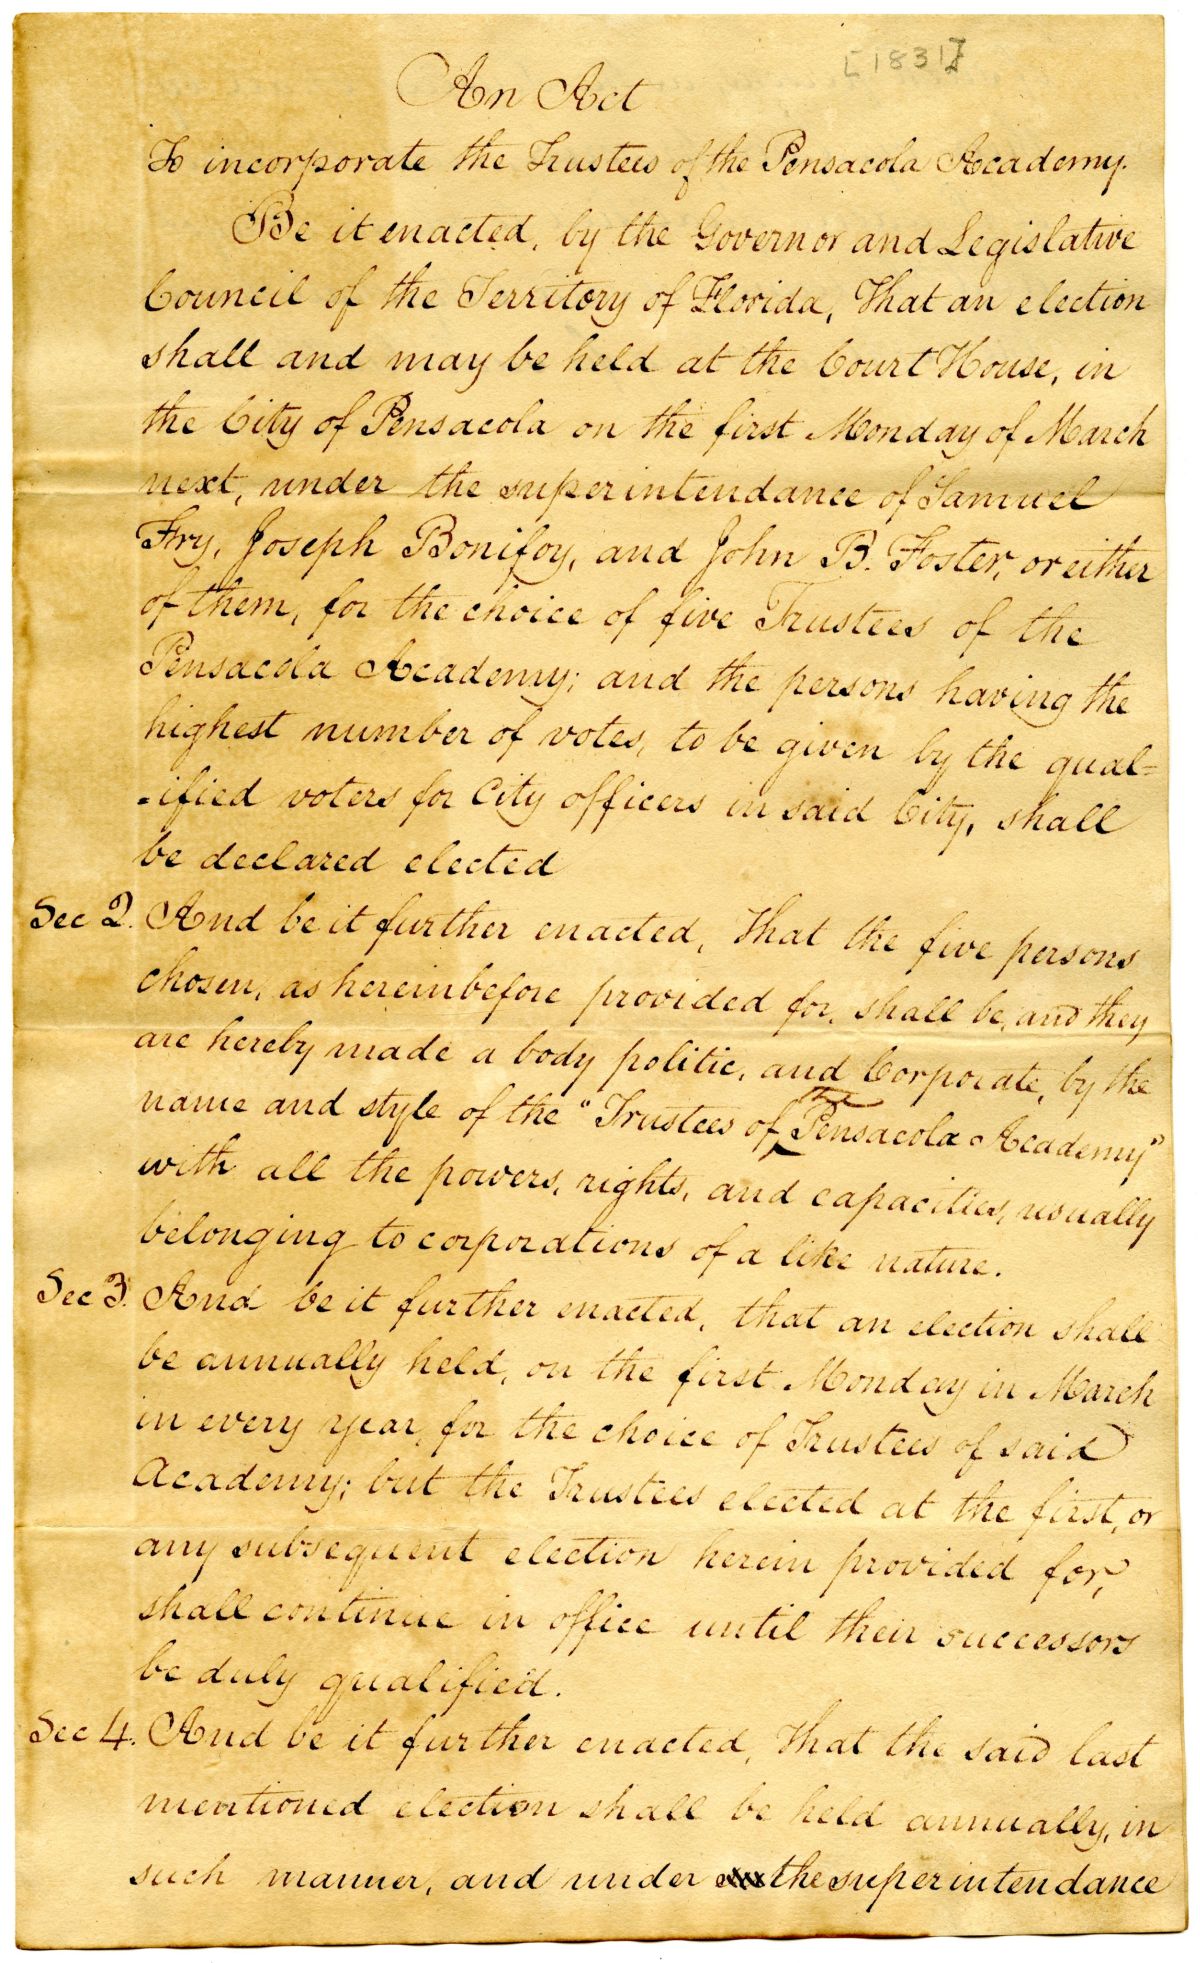 [1831]
An Act
To incorporate the Trustees of the Pensacola Academy.
Be it enacted, by the Governor and Legislative
Council of the Territory of Florida, That an election
shall and may be held at the Court House, in
the City of Pensacola on the first Monday of March
next, under the superintendance of Samuel
Fry, Joseph Bonifoy, and John B. Foster, or either
of them, for the choice of five Trustees of the
Pensacola Academy; and the persons having the
highest number of votes, to be given by the qual=
-ified voters for City officers in said City, shall
be declared elected
Sec 2. And be it further enacted, That the five persons
chosen, as hereinbefore provided for, shall be, and they
are hereby made a body politic, and Corporate, by the
name and style of the "Trustees of the Pensacola Academy"
with all the powers, rights, and capacities, usually
belonging to corporations of a like nature.
Sec 3. And be it further enacted, that an election shall
be annually held, on the first Monday in March
in every year, for the choice of Trustees of said
Academy; but the Trustees elected at the first, or
any subsequent election herein provided for,
shall continue in office until their successors
be duly qualified.
Sec 4. And be it further enacted, That the said last
mentioned election shall be held annually, in
such manner, and under the superintendance